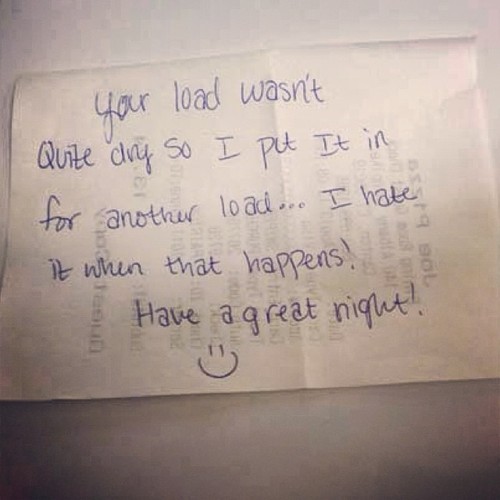 your load wasn't
Quite dry so I put It in
for another load... I hate
it when that happens!
Have a great night!